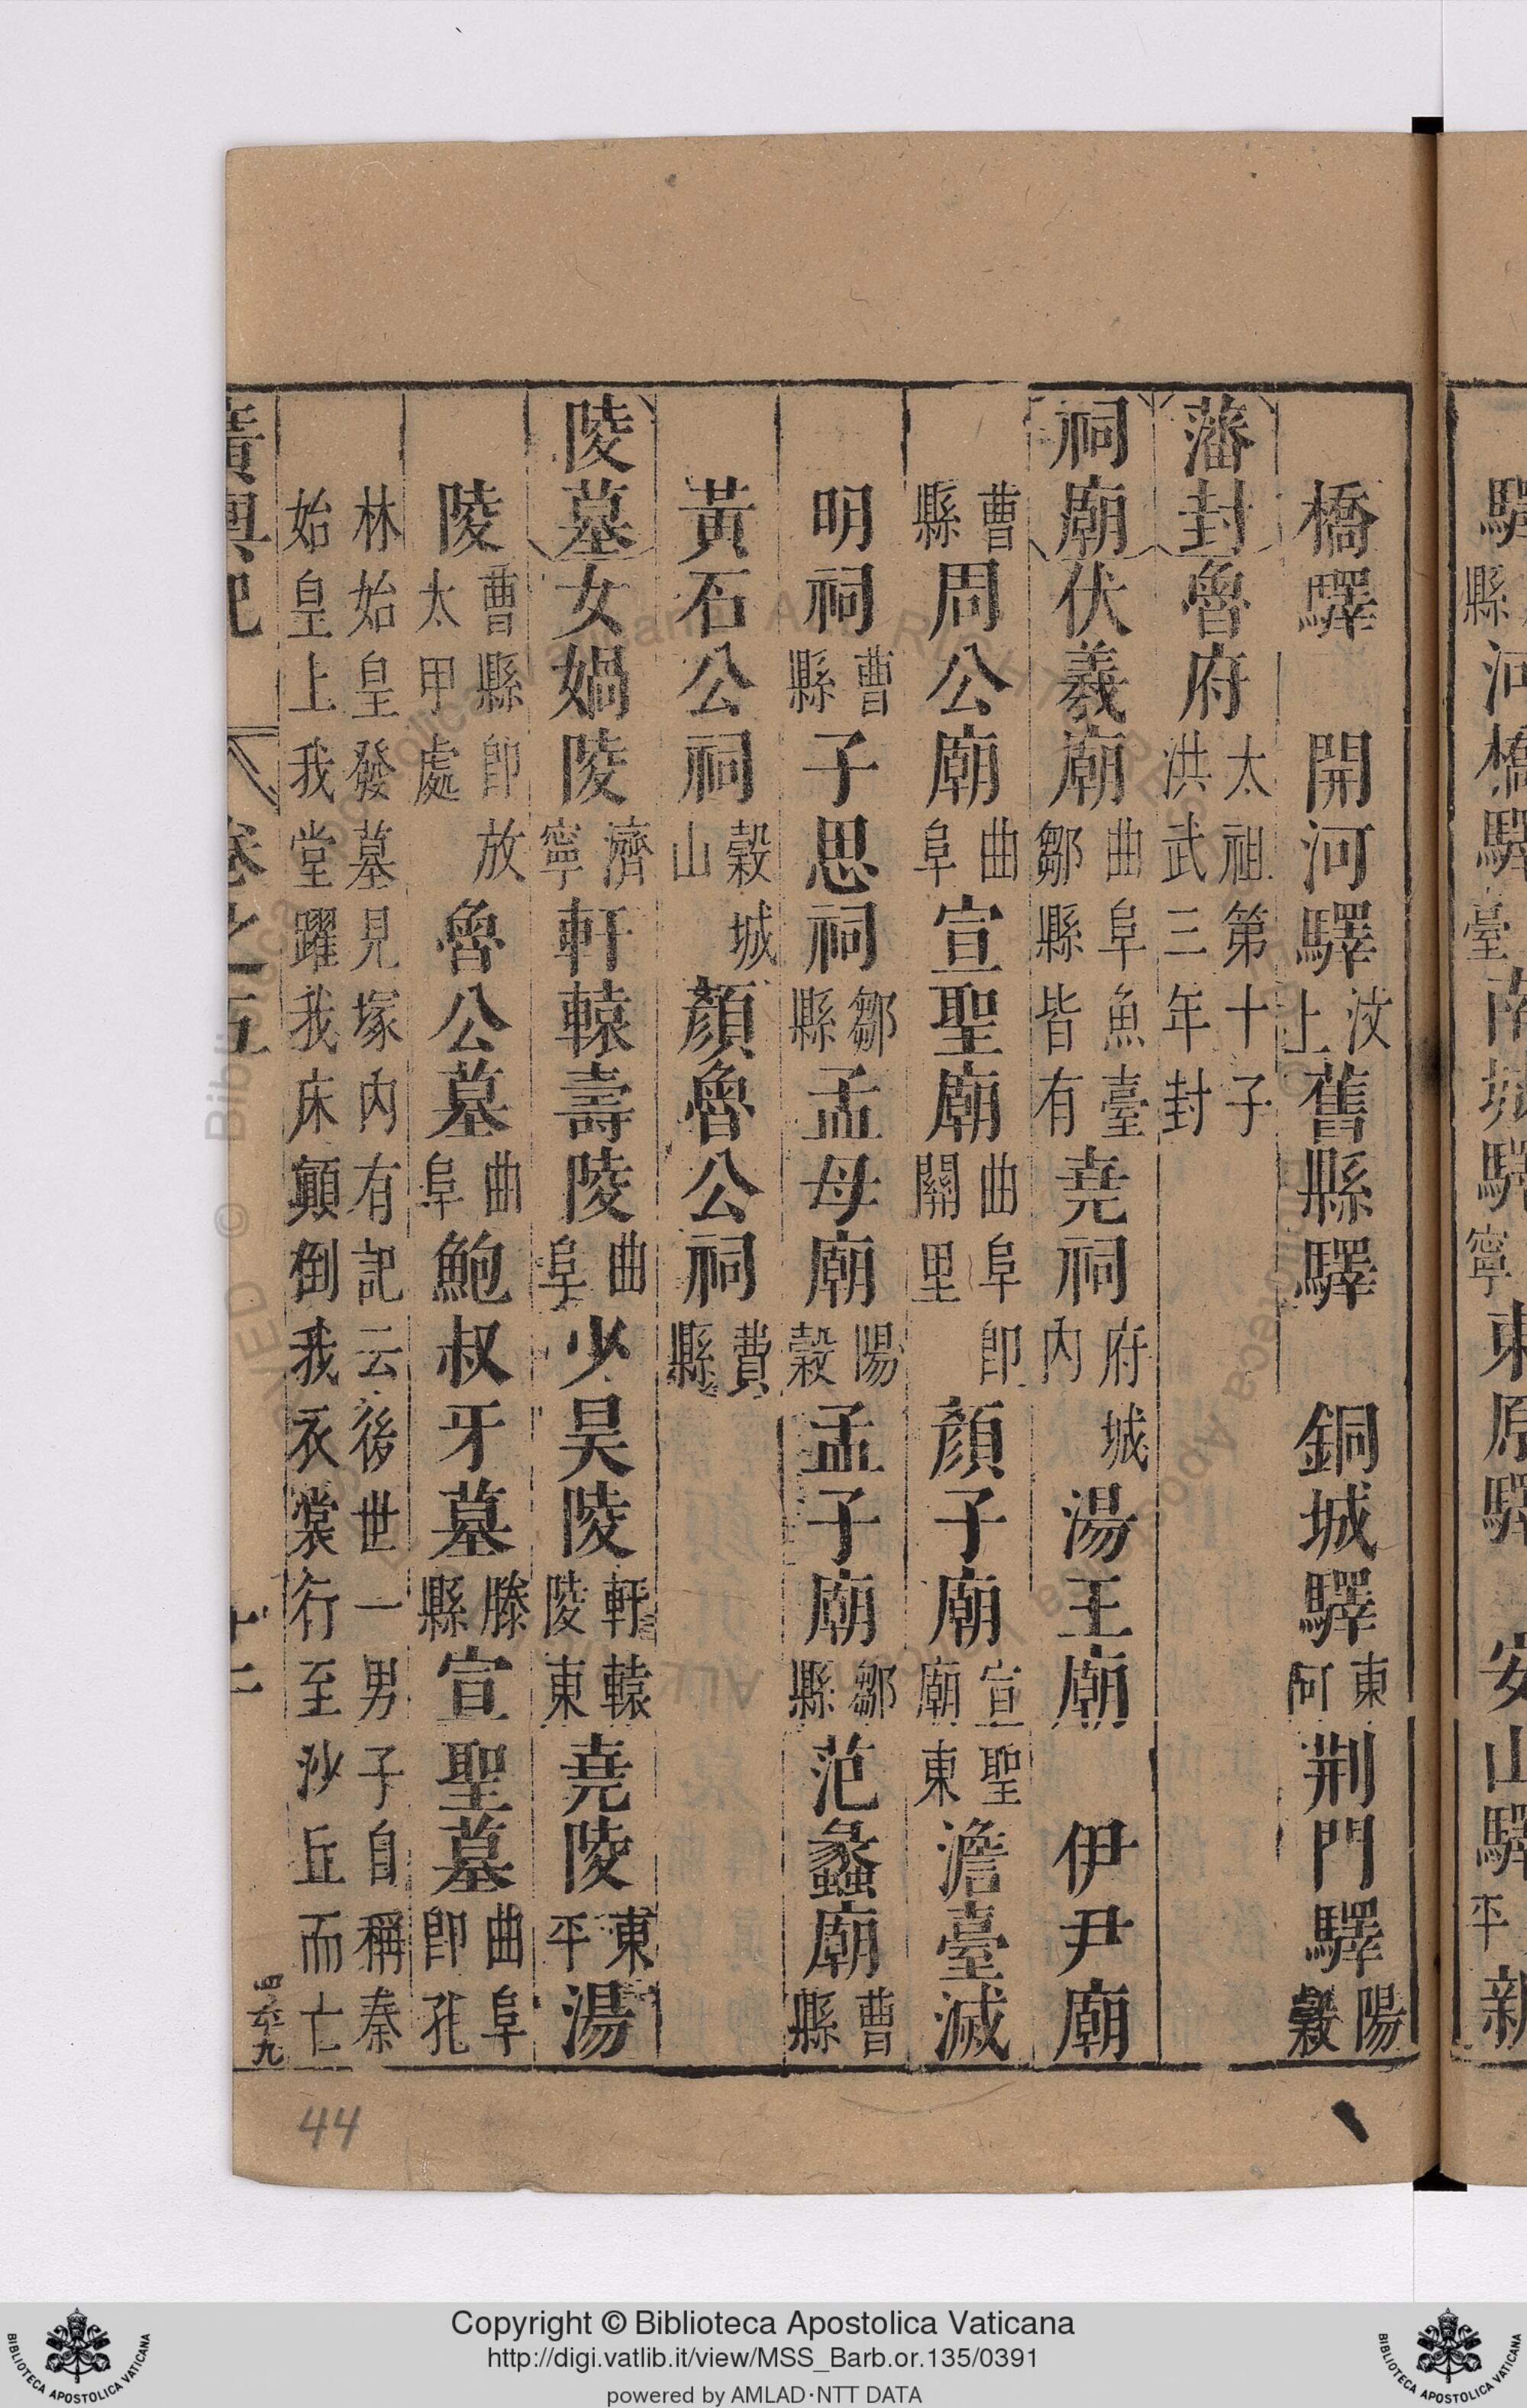 橋驛　開河驛汶上舊縣驛　銅城驛東阿荆門驛陽穀
藩封魯府太祖第十子洪武三年封
祠廟伏羲廟曲阜魚臺鄒縣皆有堯祠府城內湯王廟　伊尹廟
曹縣周公廟曲阜宣聖廟曲阜即關里顏子廟宣聖廟東澹臺滅
明祠曹縣子思祠鄒縣孟母廟陽穀孟子廟鄒縣范蠡廟曹縣
黃石公祠穀城山顏魯公祠費縣
陵墓女媧陵濟寧軒轅壽陵曲阜少昊陵軒轅陵東堯陵東平湯
陵曹縣即放太甲處魯公墓曲阜鮑叔牙墓滕縣宣聖墓曲阜即孔
林始皇發墓見塚內有記云後世一男子自稱秦始皇上我堂躍我床顛倒我衣裳行至沙丘而亡
廣輿記　卷之五　十二
四百六十九
44
驛
縣
河橋驛
臺
南城驛
寧
東原驛
安山驛
平
新
Copyright © Biblioteca Apostolica Vaticana
http://digi.vatlib.it/view/MSS_Barb.or.135/0391
powered by AMLAD·NTT DATA
BIBLIOTECA APOSTOLICA VATICANA
BIBLIOTECA APOSTOLICA VATICANA